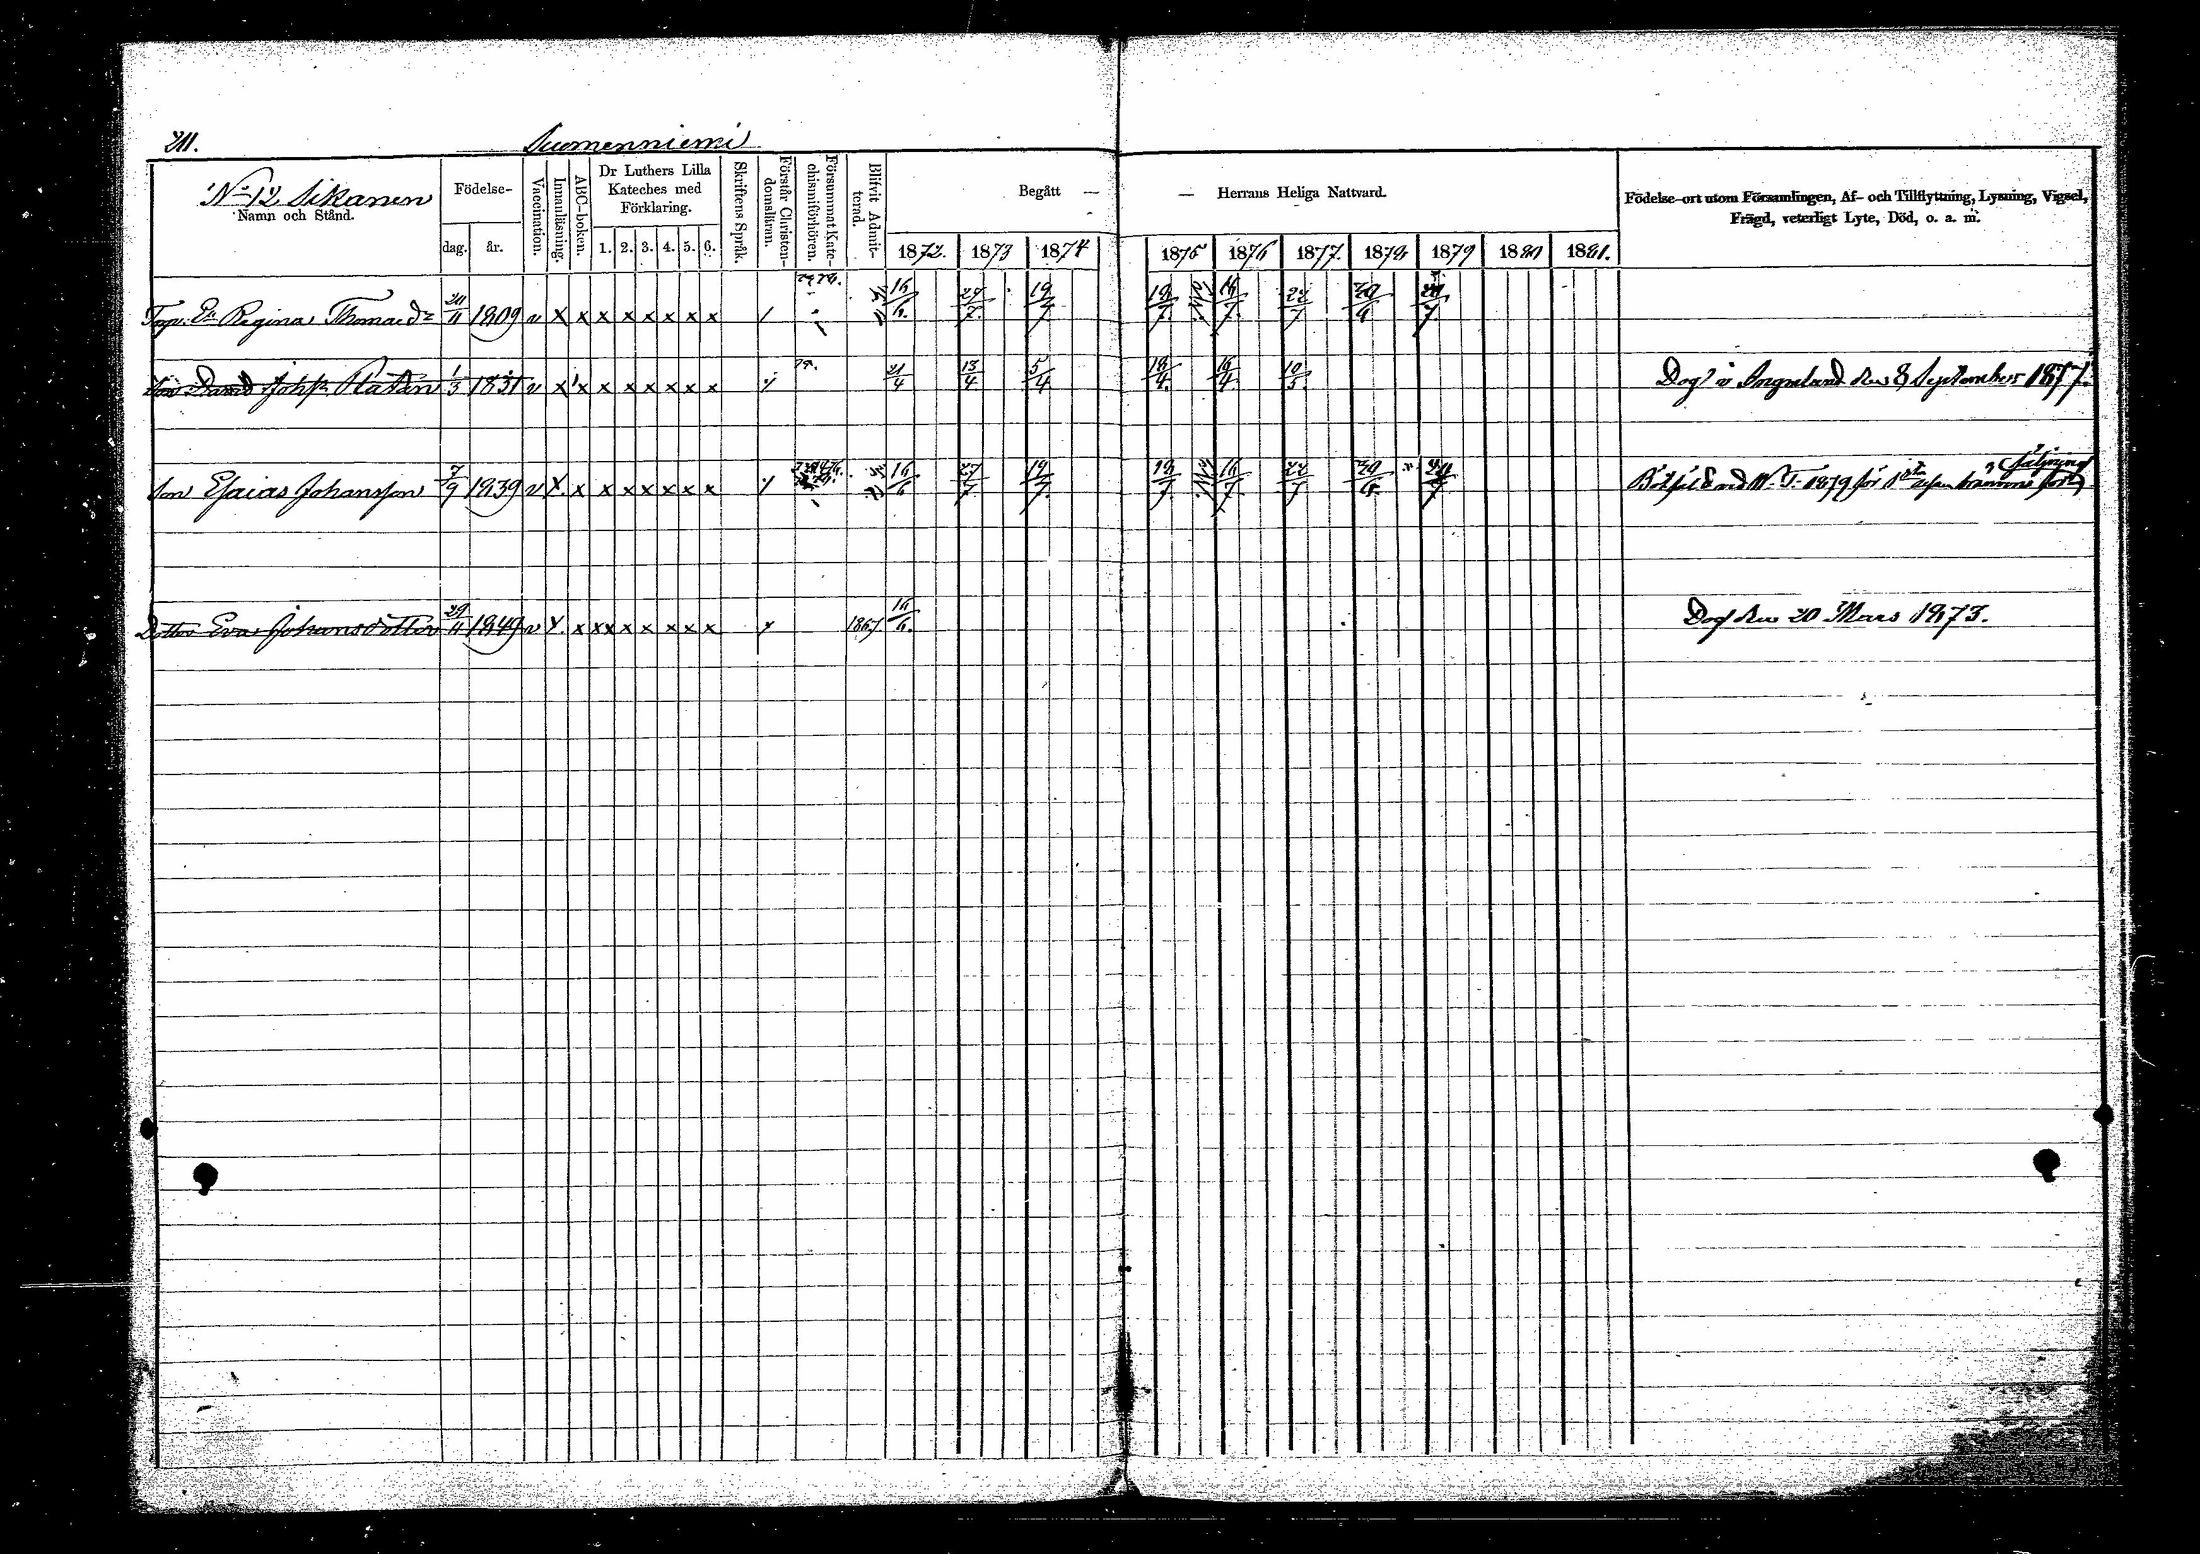 211.
Suomenniemi
No 12 Sikanen
Namn och Stånd.
Födelse-
dag. år.
Vaccination.
Innanläsning.
ABC-boken.
Dr Luthers Lilla
Kateches med
Förklaring.
1. 2. 3. 4. 5. 6.
Skriftens Språk.
Förstår Christen-
domsläran.
Försummat Kate-
chismiförhören.
Blifvit Admit-
terad.
Begått — — Herrans Heliga Nattvard.
1872. 1873 1874 1875 1876 1877. 1878 1879 1880 1881.
Födelse-ort utom Församlingen, Af- och Tillflyttning, Lysning, Vigsel,
Frägd, veterligt Lyte, Död, o. a. m.
Regina Thomaedr 20/11 1809 v x x x x x x x x 16/6. 27/7. 19/7 18/7. 16/7. 22/7 30/6 20/7
Son David Johss Platan 1/3 1831 v x x x x x x x x 21/4 13/4 5/4 18/4. 16/4 10/5. Dog i Ingerland den 8 September 1877.
Son Esaias Johansson 7/9 1839 v x x x x x x x x 16/6 27/7 19/7 18/7 16/7 22/7 30/6 20/7 1879 för
Dotter Eva Johansdotter 29/11 1849 v x x x x x x x x 1867 16/6. Dog den 20 Mars 1873.